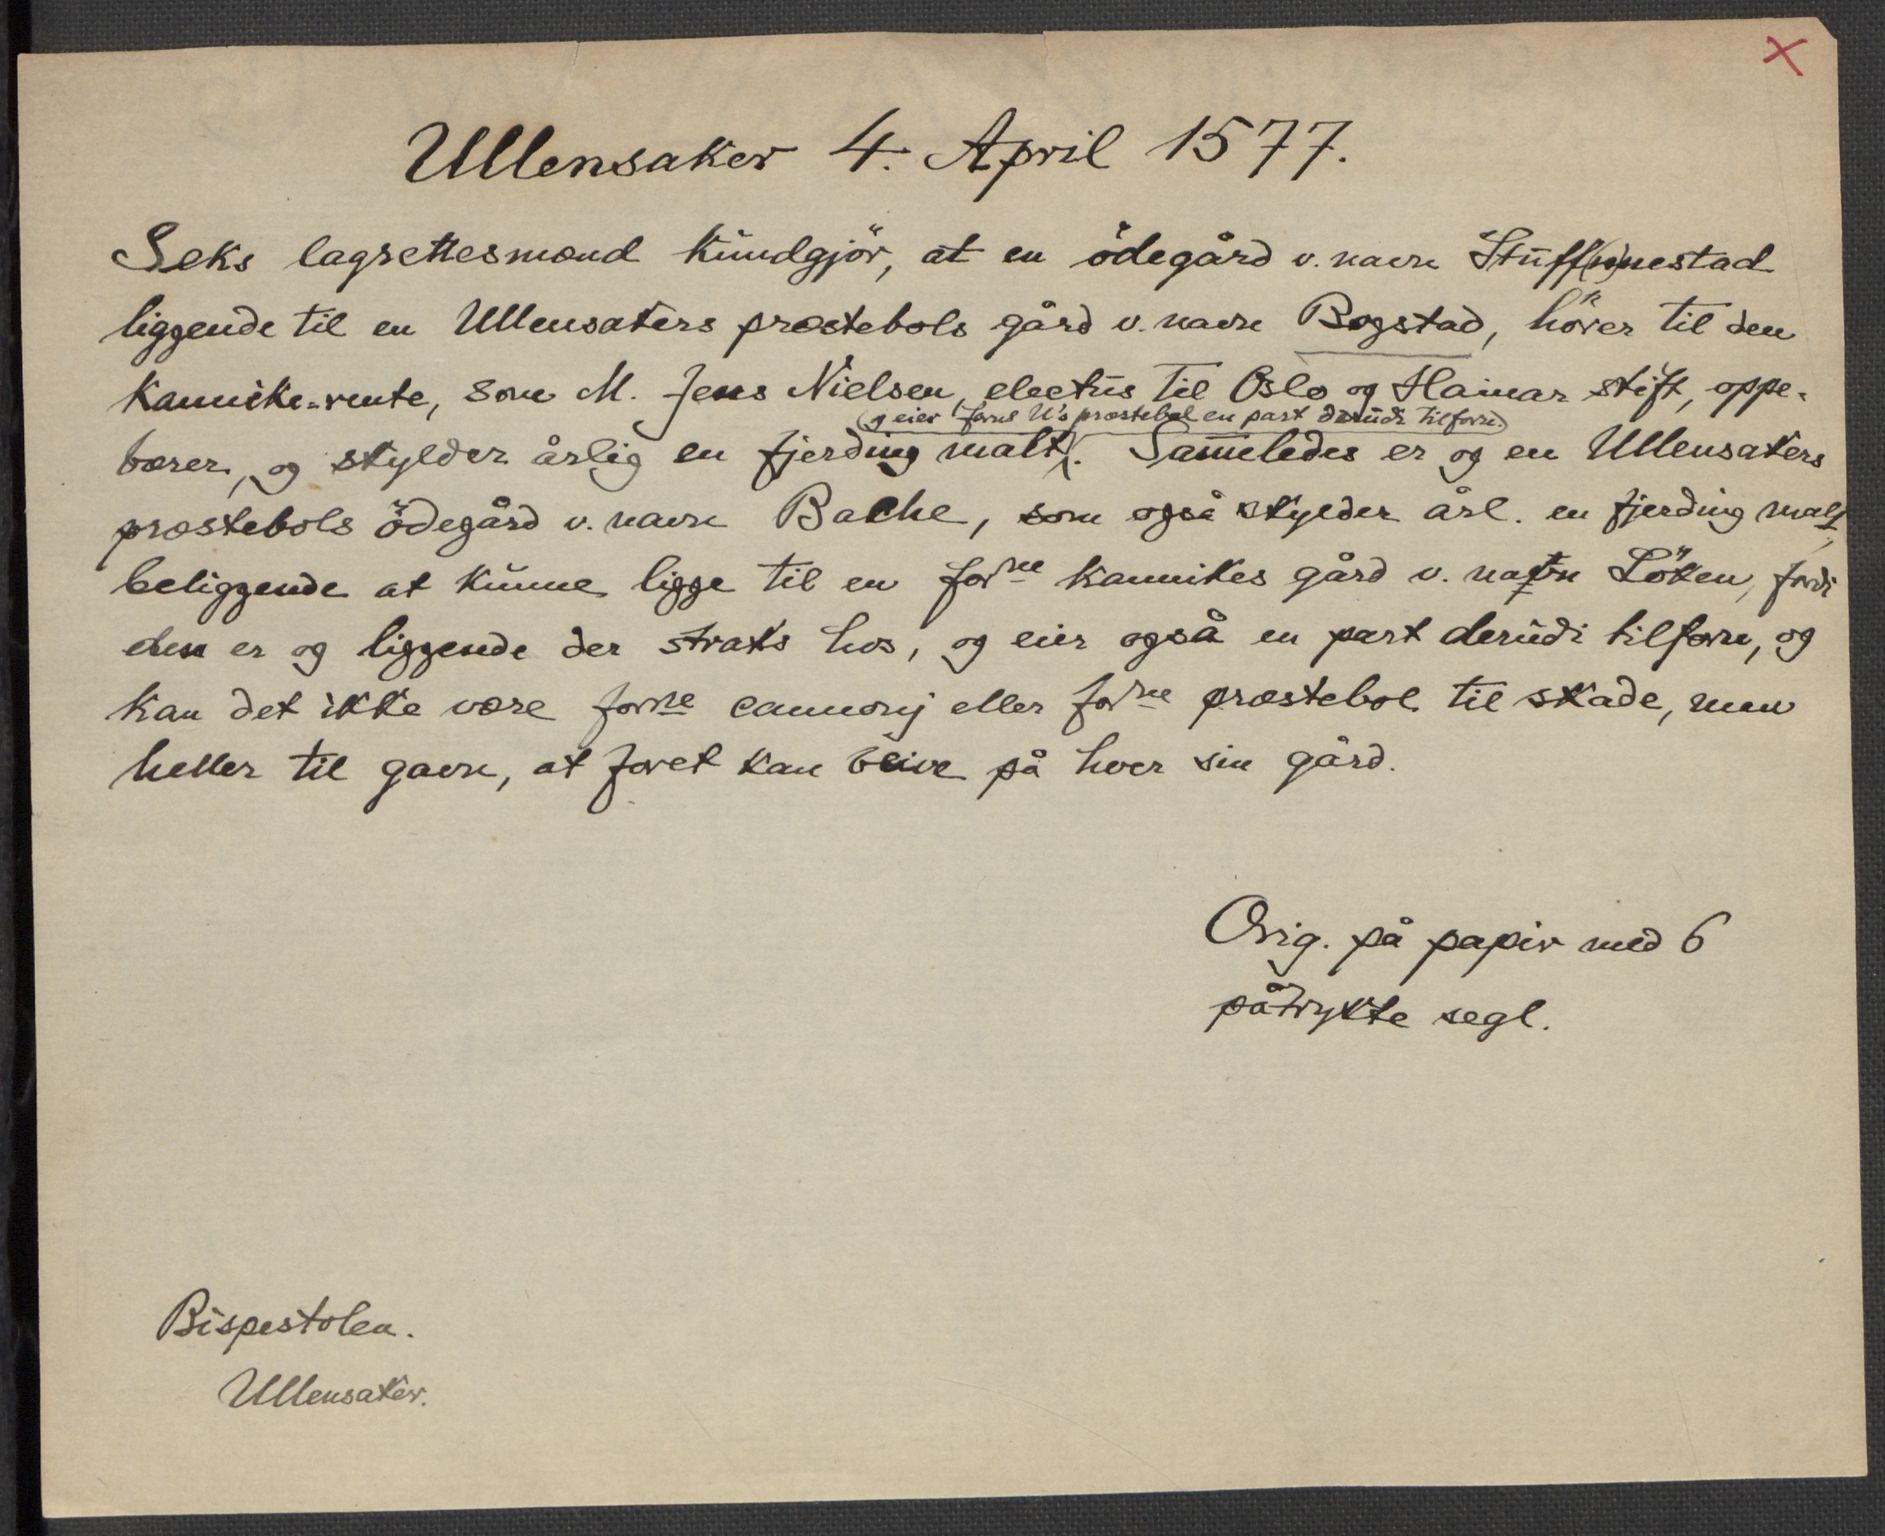 Ullensaker 4. April 1577.
Seks lagrettesmænd kundgjör, at en ödegård v. navn Stuff(n)nestad
liggende til en Ullensakers præstebols gård v. navn Bogstad, hörer til den
kannike-rente, som M. Jens Nielsen, electus til Oslo og Hamar stift, oppe-
(og eier forne U's præstebol en part derudi tilforn.)
bærer, og skylder årlig en fjerding malt. Sammeledes er og en Ullensakers
præstebols ödegård v. navn Bache, som også skylder årl. en fjerding malt,
beliggende at kunne ligge til en forne kannikes gård v. navn Löken, fordi
den er og liggende der straks hos, og eier også en part derudi tilforn, og
kan det ikke være forne cannonij eller forne præstebol til skade, men
heller til gavn, at foret kan blive på hver sin gård.
Orig. på papir med 6
påtrykte segl.
Bispestolen.
Ullensaker.